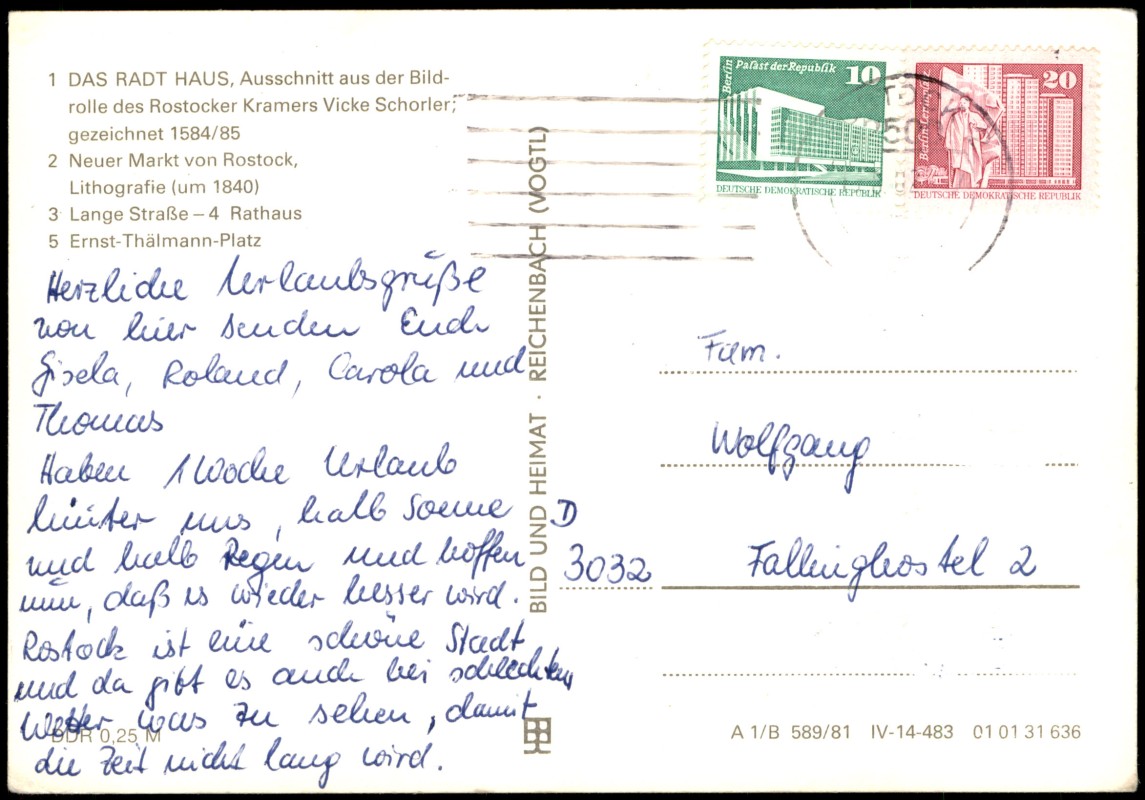 1 DAS RADT HAUS, Ausschnitt aus der Bild-
rolle des Rostocker Kramers Vicke Schorler;
gezeichnet 1584/85
2 Neuer Markt von Rostock,
Lithografie (um 1840)
3 Lange Straße – 4 Rathaus
5 Ernst-Thälmann-Platz
Herzliche Urlaubsgrüße
von hier senden Euch
Gisela, Roland, Carola und
Thomas
Haben 1 Woche Urlaub
hinter uns, halb Sonne
und halb Regen und hoffen
nun, daß es wieder besser wird.
Rostock ist eine schöne Stadt
und da gibt es auch bei schlechtem
Wetter was zu sehen, damit
die Zeit nicht lang wird.
DDR 0,25 M
BILD UND HEIMAT · REICHENBACH (VOGTL)
Berlin Palast der Republik 10
DEUTSCHE DEMOKRATISCHE REPUBLIK
20
DEUTSCHE DEMOKRATISCHE REPUBLIK
Fam.
Wolfgang
D
3032 Fallingbostel 2
A 1/B 589/81 IV-14-483 01 01 31 636